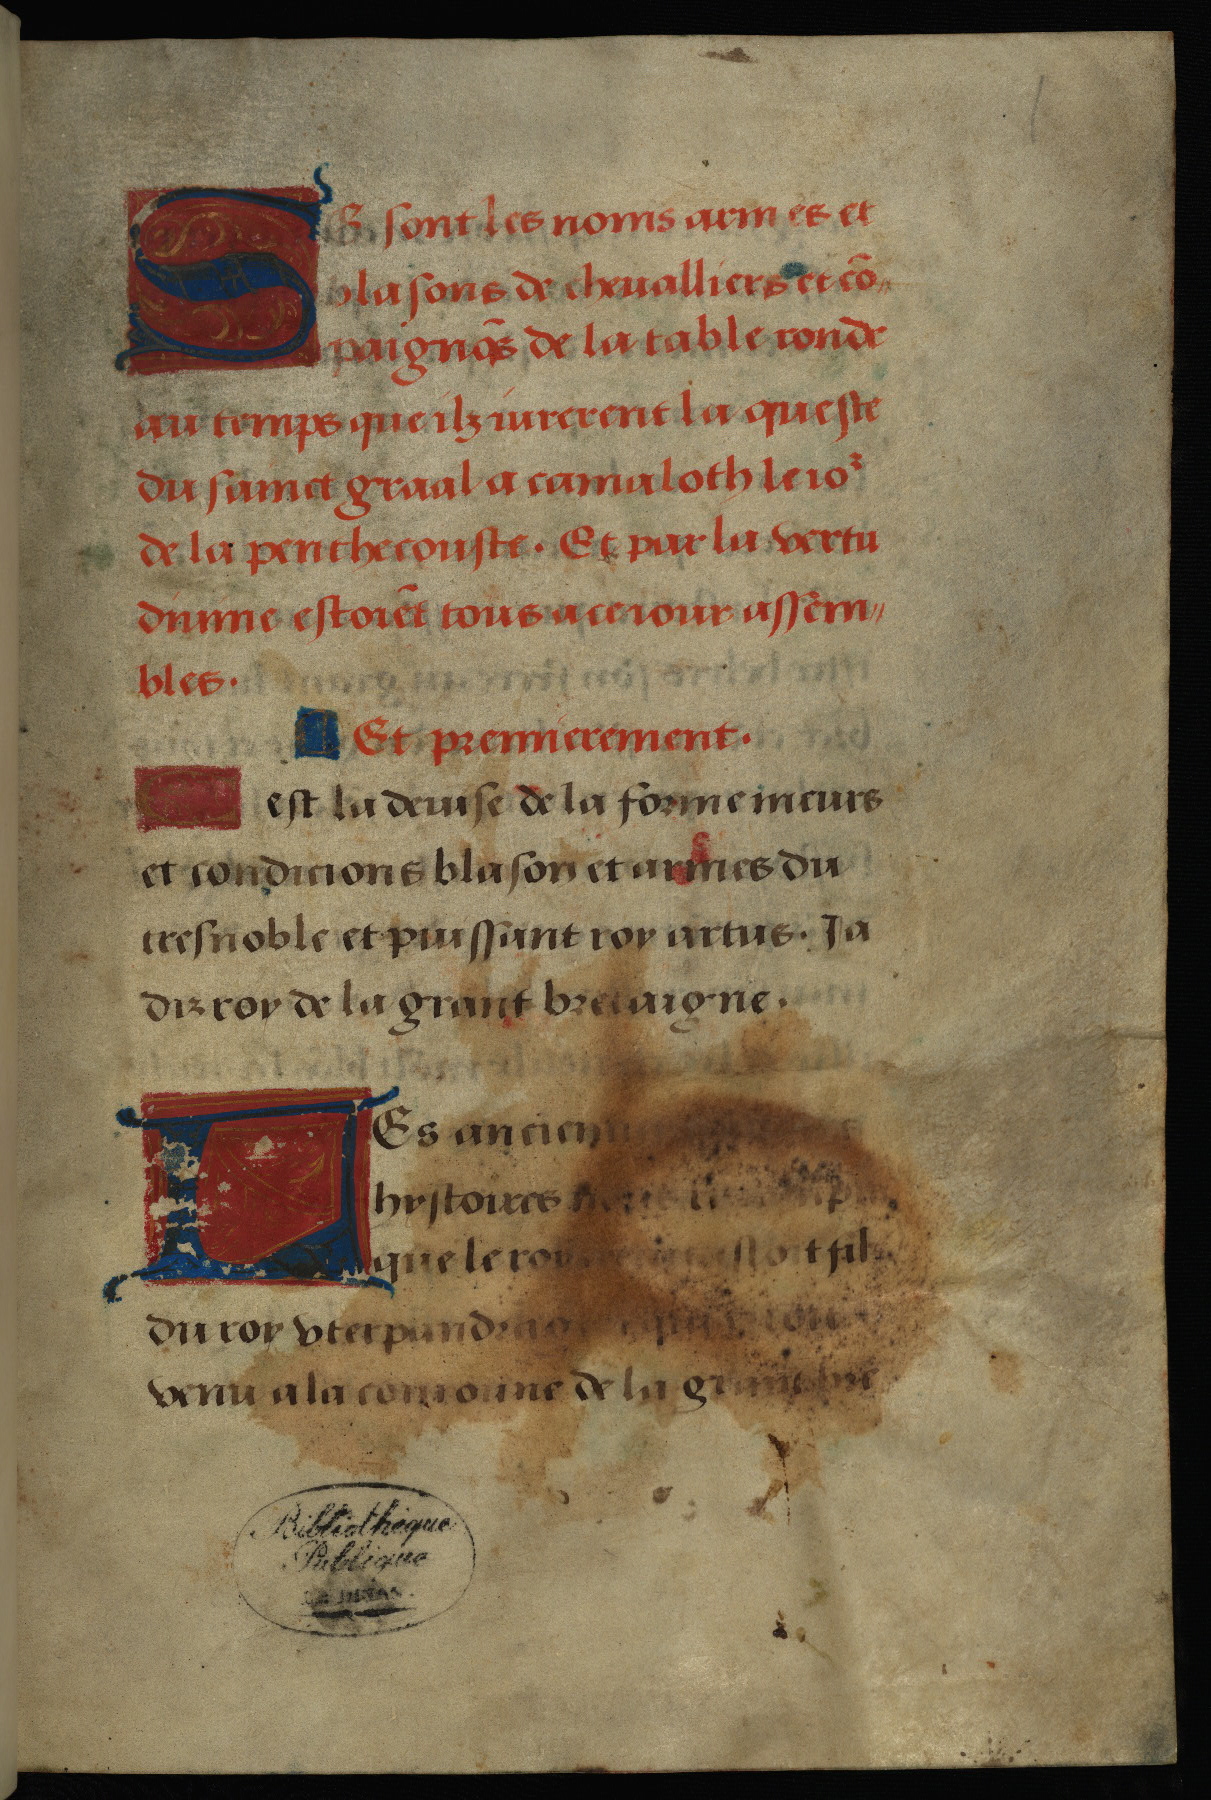 SE sont les noms armes et
blasons de cheualliers et cõ〃
paignõs de la table ronde
au temps que ilz iurerent la queste
du sainct graal a camaloth le ioᷣ
de la penthecouste. Et par la vertu
diuine estoiẽt tous a ce iour assem〃
bles.
Et premierement.
est la deuise de la forme meurs
et condicions blason et armes du
tresnoble et puissant roy artus. Ja
diz roy de la grant bretaigne.
LEs ancien
hystoires
que le roy estoit filz
du roy vterpandragon
venu a la couronne de la grant bre
Bibliothèque
Publique